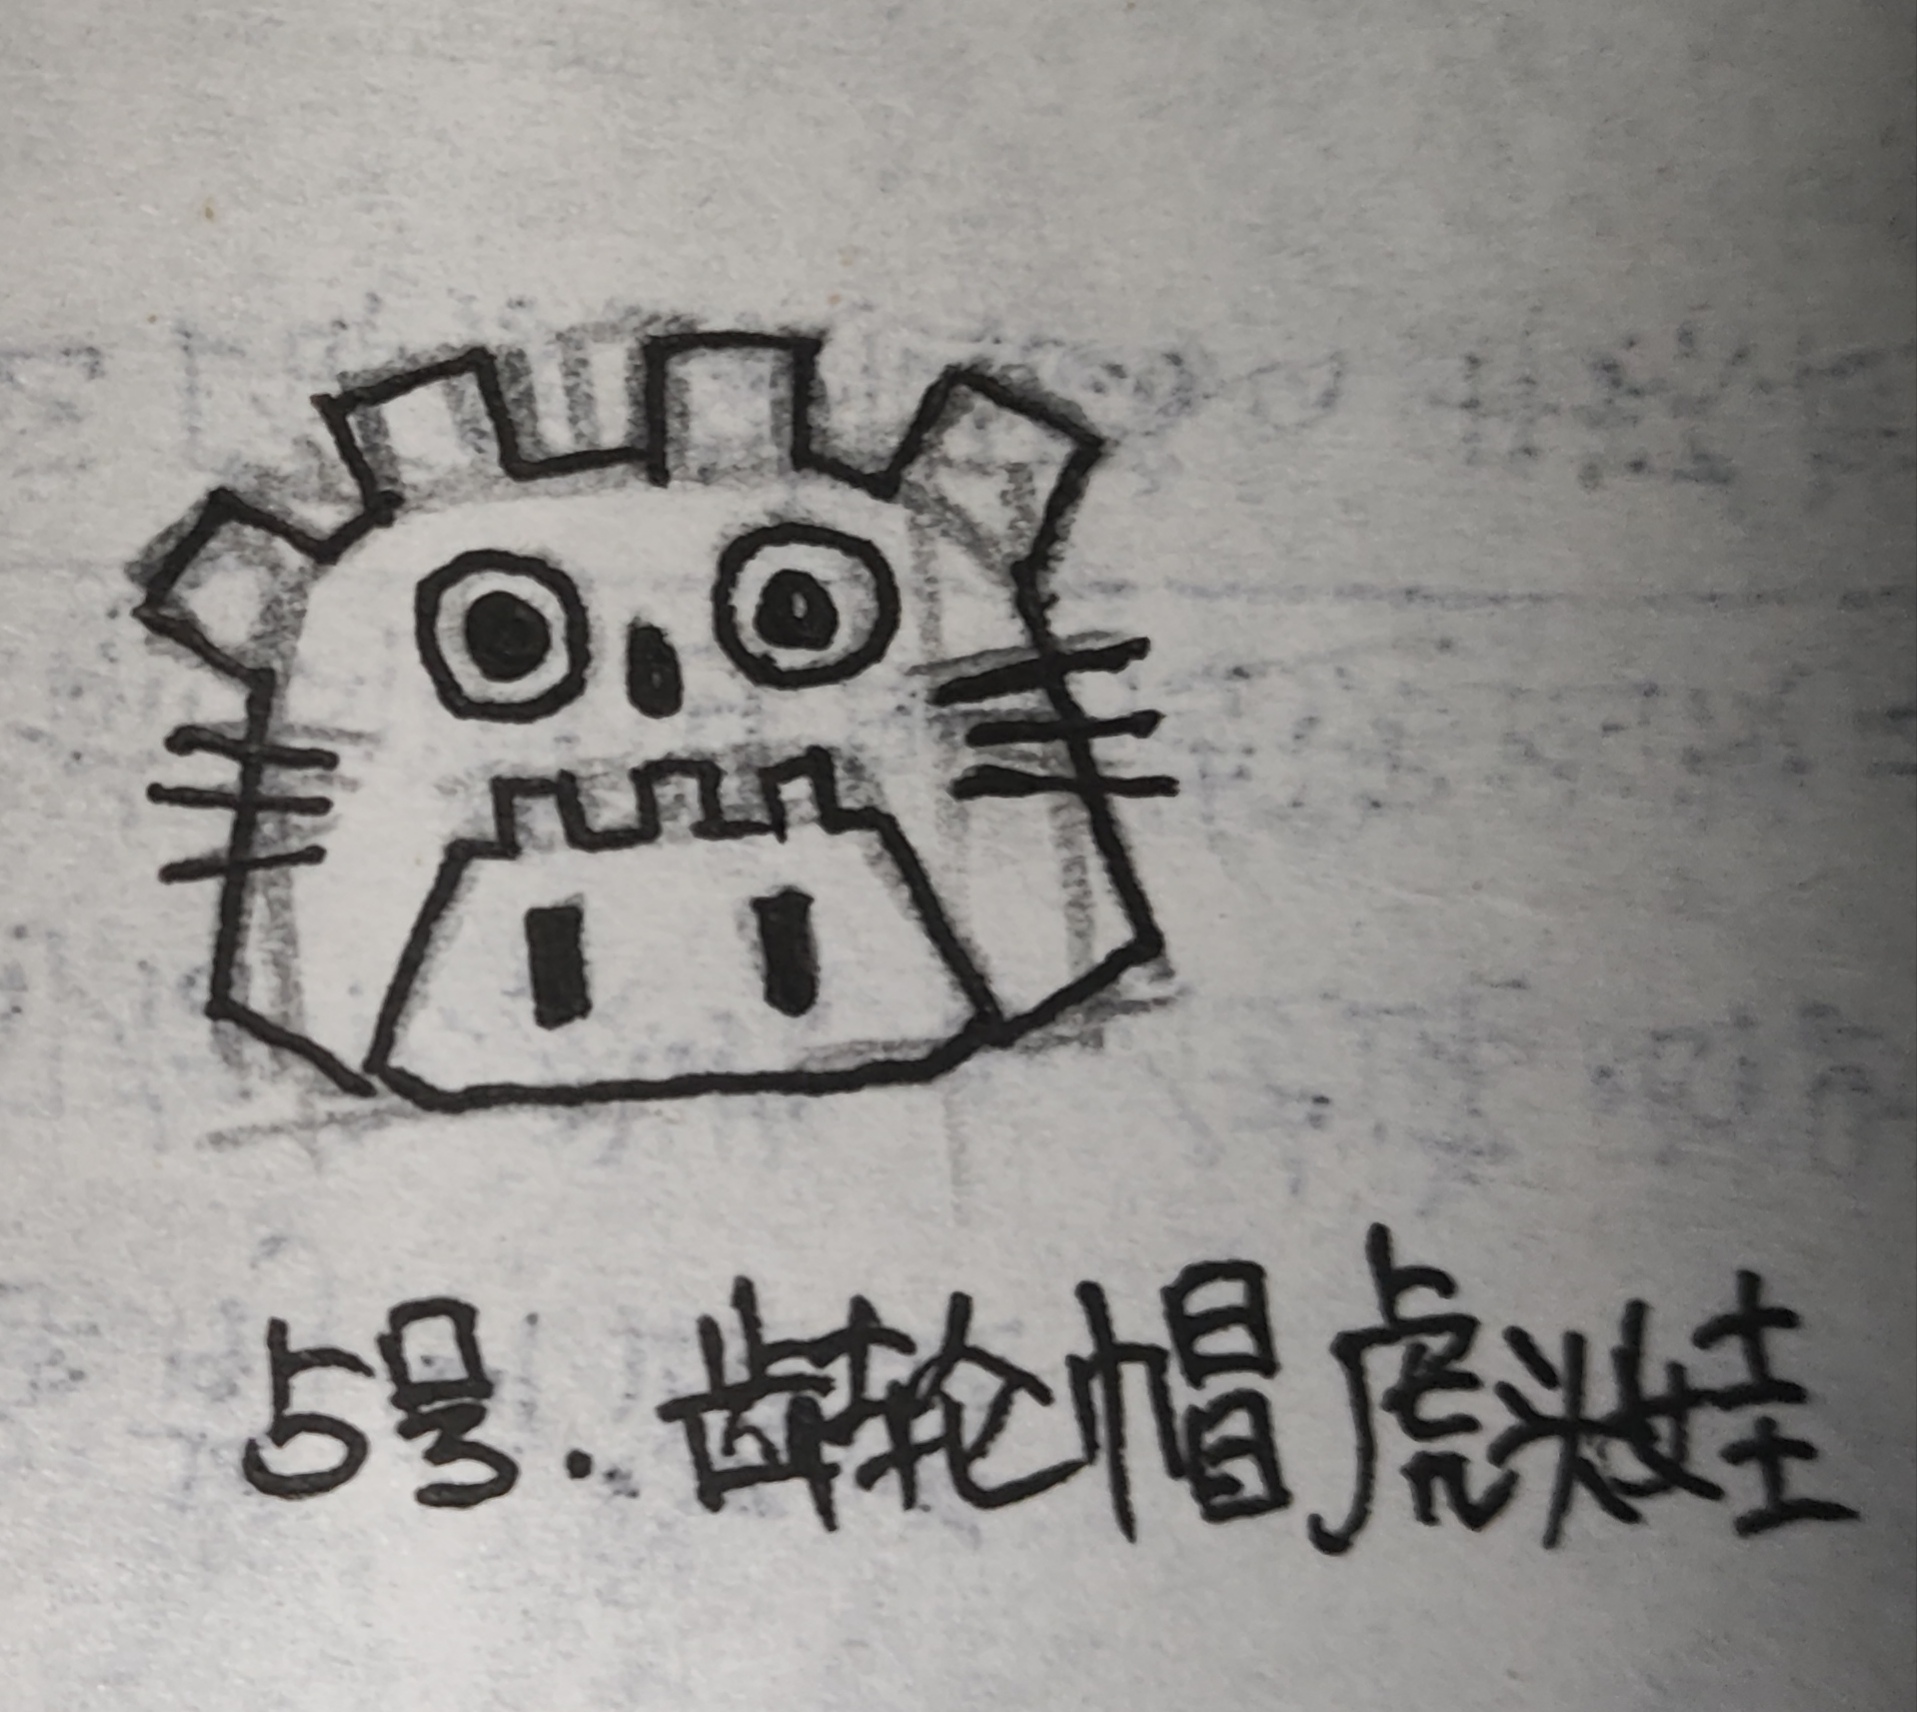 5号.齿轮帽虎娃